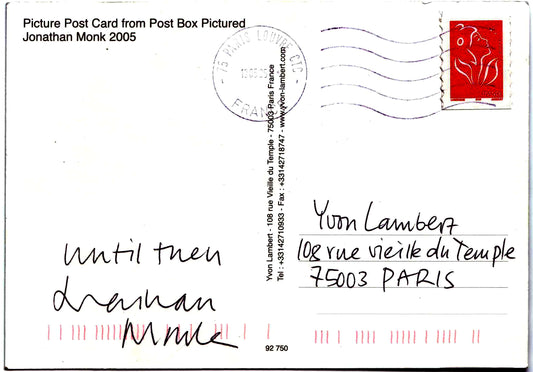 Picture Post Card from Post Box Pictured
Jonathan Monk 2005
75 PARIS LOUVRE CTC
FRANCE
Yvon Lambert - 108 rue Vieille du Temple - 75003 Paris France
Tel : +33142710933 - Fax : +33142718747 - www.yvon-lambert.com
until then
Jonathan
Monk
Yvon Lambert
108 rue vieille du Temple
75003 PARIS
92 750